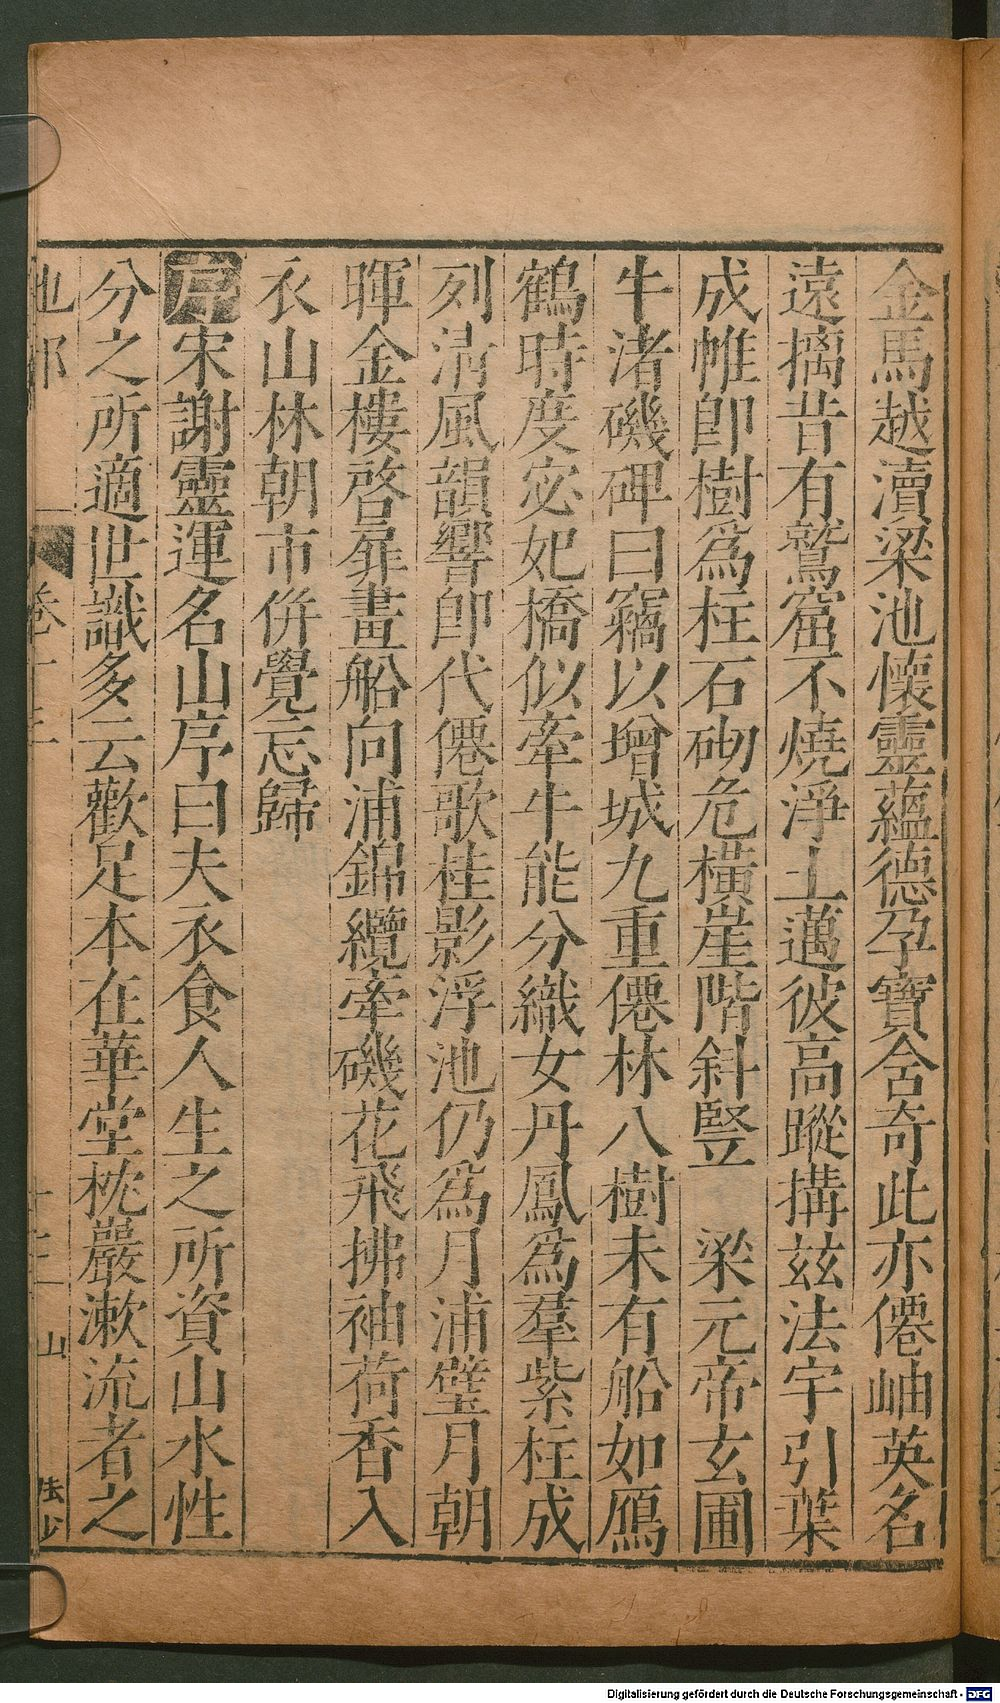 金馬越瀆梁池懷靈蘊德孕寶含奇此亦僊岫英名
遠摛昔有鷲窟不燒淨土邁彼高蹤搆茲法宇引葉
成帷卽樹爲柱石砌危橫崖階斜豎　梁元帝玄圃
牛渚磯碑曰竊以增城九重僊林八樹未有船如鴈
鶴時度宓妃橋似牽牛能分織女丹鳳爲羣紫柱成
列清風韻響卽代僊歌桂影浮池仍爲月浦璧月朝
暉金樓啓扉畫船向浦錦纜牽磯花飛拂袖荷香入
衣山林朝市併覺忘歸
序宋謝靈運名山序曰夫衣食人生之所資山水性
分之所適世識多云歡足本在華堂枕巖漱流者之
地部　卷　山